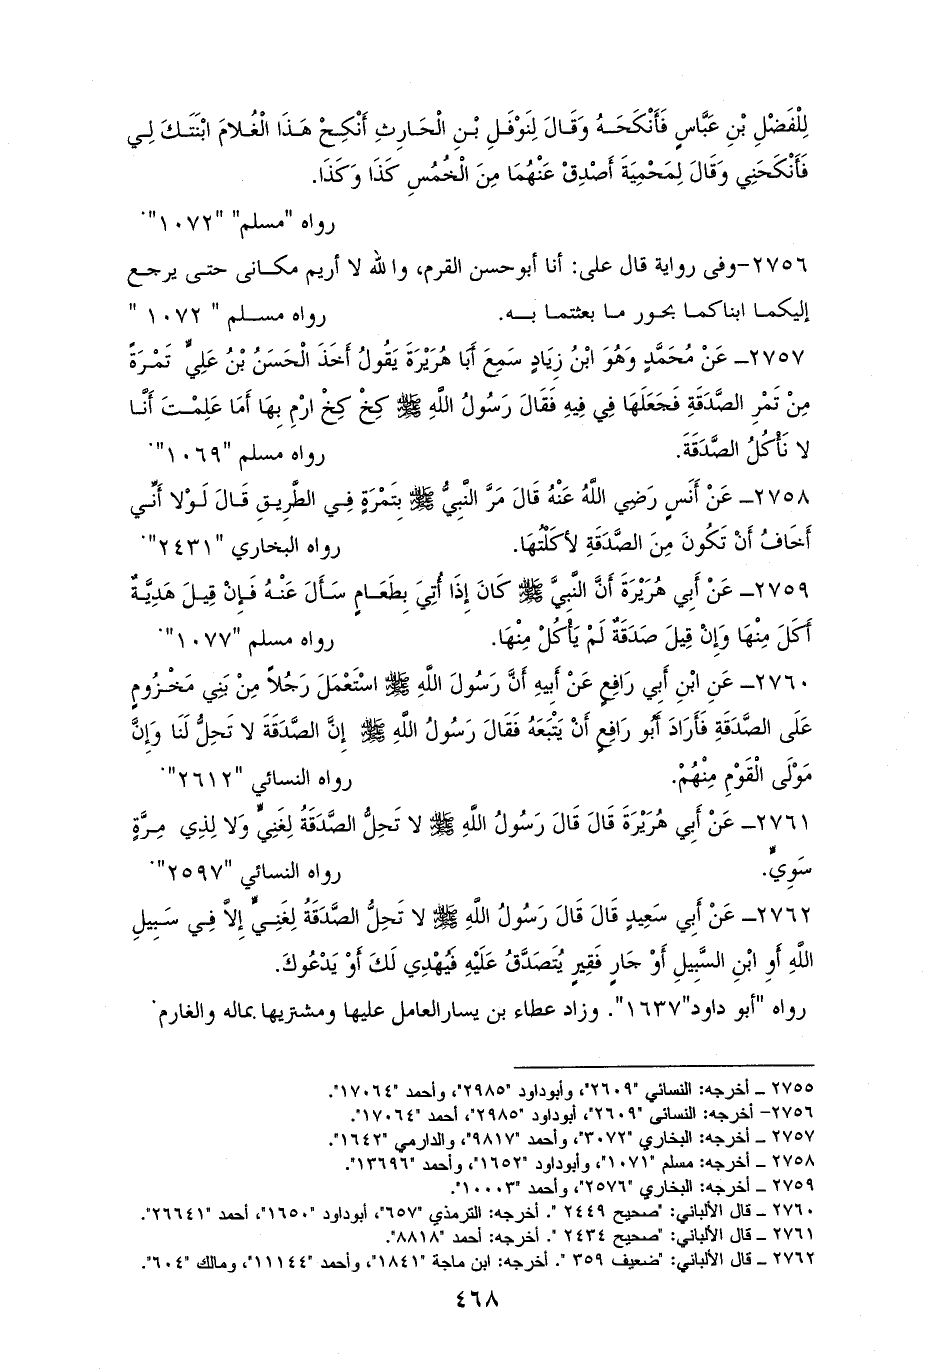 لِلْفَضْلِ بْنِ عَبَّاسٍ فَأَنْكَحَـهُ وَقَالَ لِنَوْفَلِ بْـنِ الْحَـارِثِ أَنْكِـحْ هَـذَا الْغُـلامَ ابْنَتَـكَ لِـي
فَأَنْكَحَنِي وَقَالَ لِمَحْمِيَةَ أَصْدِقْ عَنْهُمَا مِنَ الْخُمُسِ كَذَا وَكَذَا.
رواه "مسلم" "١٠٧٢".
٢٧٥٦-وفى رواية قال على: أنا أبوحسن القرم، والله لا أريم مكـانى حتـى يرجـع
إليكمـا ابناكمـا بحـور مـا بعثتمـا بـه. رواه مسـلم " ١٠٧٢ "
٢٧٥٧ـ عَنْ مُحَمَّدٍ وَهُوَ ابْنُ زِيَادٍ سَمِعَ أَبَا هُرَيْرَةَ يَقُولُ أَخَذَ الْحَسَنُ بْنُ عَلِيٍّ تَمْـرَةً
مِنْ تَمْرِ الصَّدَقَةِ فَجَعَلَهَا فِي فِيهِ فَقَالَ رَسُولُ اللَّهِ ﷺ كِخْ كِخْ ارْمِ بِهَا أَمَا عَلِمْـتَ أَنَّـا
لا نَأْكُلُ الصَّدَقَةَ. رواه مسلم "١٠٦٩".
٢٧٥٨ـ عَنْ أَنَسٍ رَضِي اللَّهُ عَنْهُ قَالَ مَرَّ النَّبِيُّ ﷺ بِتَمْرَةٍ فِـي الطَّرِيقِ قَـالَ لَـوْلا أَنِّـي
أَخَافُ أَنْ تَكُونَ مِنَ الصَّدَقَةِ لأَكَلْتُهَا. رواه البخاري "٢٤٣١".
٢٧٥٩ـ عَنْ أَبِي هُرَيْرَةَ أَنَّ النَّبِيَّ ﷺ كَانَ إِذَا أُتِيَ بِطَعَـامٍ سَـأَلَ عَنْـهُ فَـإِنْ قِيـلَ هَدِيَّـةٌ
أَكَلَ مِنْهَا وَإِنْ قِيلَ صَدَقَةٌ لَمْ يَأْكُلْ مِنْهَا. رواه مسلم "١٠٧٧".
٢٧٦٠ـ عَنِ ابْنِ أَبِي رَافِعٍ عَنْ أَبِيهِ أَنَّ رَسُولَ اللَّهِ ﷺ اسْتَعْمَلَ رَجُلاً مِنْ بَنِي مَخْـزُومٍ
عَلَى الصَّدَقَةِ فَأَرَادَ أَبُو رَافِعٍ أَنْ يَتْبَعَهُ فَقَالَ رَسُولُ اللَّهِ ﷺ إِنَّ الصَّدَقَةَ لا تَحِلُّ لَنَا وَإِنَّ
مَوْلَى الْقَوْمِ مِنْهُمْ. رواه النسائي "٢٦١٢".
٢٧٦١ـ عَنْ أَبِي هُرَيْرَةَ قَالَ قَالَ رَسُولُ اللَّهِ ﷺ لا تَحِلُّ الصَّدَقَةُ لِغَنِيٍّ وَلا لِذِي مِرَّةٍ
سَوِيٍّ. رواه النسائي "٢٥٩٧".
٢٧٦٢ـ عَنْ أَبِي سَعِيدٍ قَالَ قَالَ رَسُولُ اللَّهِ ﷺ لا تَحِلُّ الصَّدَقَةُ لِغَنِـيٍّ إِلاَّ فِـي سَـبِيلِ
اللَّهِ أَوِ ابْنِ السَّبِيلِ أَوْ جَارٍ فَقِيرٍ يُتَصَدَّقُ عَلَيْهِ فَيُهْدِي لَكَ أَوْ يَدْعُوكَ.
رواه "أبو داود"١٦٣٧". وزاد عطاء بن يسارالعامل عليها ومشتريها بماله والغارم.
٢٧٥٥ ـ أخرجه: النسائي "٢٦٠٩"، وأبوداود "٢٩٨٥"، وأحمد "١٧٠٦٤".
٢٧٥٦- أخرجه: النسائى "٢٦٠٩"، أبوداود "٢٩٨٥"، أحمد "١٧٠٦٤".
٢٧٥٧ ـ أخرجه: البخاري "٣٠٧٢"، وأحمد "٩٨١٧"، والدارمي "١٦٤٢".
٢٧٥٨ ـ أخرجه: مسلم "١٠٧١"، وأبوداود "١٦٥٢"، وأحمد "١٣٦٩٦".
٢٧٥٩ ـ أخرجه: البخاري "٢٥٧٦"، وأحمد "١٠٠٠٣".
٢٧٦٠ ـ قال الألباني: "صحيح ٢٤٤٩ ". أخرجه: الترمذي "٦٥٧"، أبوداود "١٦٥٠"، أحمد "٢٦٦٤١".
٢٧٦١ ـ قال الألباني: "صحيح ٢٤٣٤ ". أخرجه: أحمد "٨٨١٨".
٢٧٦٢ ـ قال الألباني: "ضعيف ٣٥٩ ". أخرجه: ابن ماجة "١٨٤١"، وأحمد "١١١٤٤"، ومالك "٦٠٤".
٤٦٨